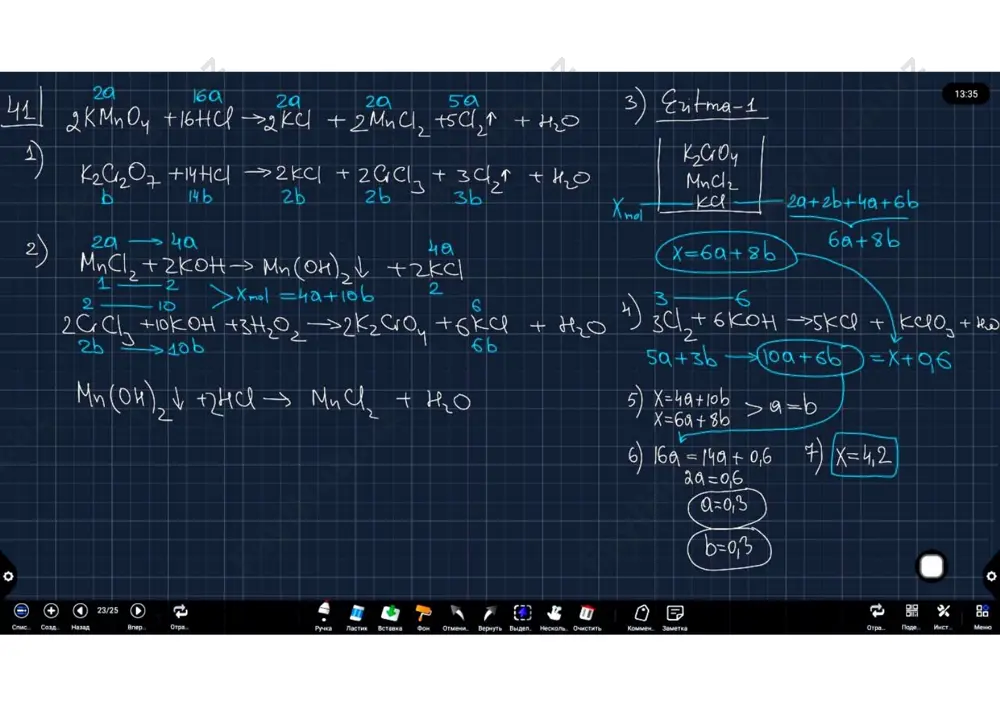 13:35
41
2a 16a 2a 2a 5a
2KMnO₄ +16HCl → 2KCl + 2MnCl₂ +5Cl₂↑ + H₂O
1)
K₂Cr₂O₇ +14HCl → 2KCl + 2CrCl₃ + 3Cl₂↑ + H₂O
b 14b 2b 2b 3b
2)
2a → 4a 4a
MnCl₂ + 2KOH → Mn(OH)₂↓ + 2KCl
1 — 2 2
> Xmol = 4a+10b
2 — 10 6
2CrCl₃ +10KOH +3H₂O₂ → 2K₂CrO₄ +6KCl + H₂O
2b → 10b 6b
Mn(OH)₂↓ +2HCl → MnCl₂ + H₂O
3) Eritma-1
K₂CrO₄
MnCl₂
Xmol — KCl — 2a+2b+4a+6b
6a+8b
X=6a+8b
4)
3 — 6
3Cl₂+ 6KOH → 5KCl + KClO₃ + H₂O
5a+3b → 10a+6b = X+0,6
5) X=4a+10b
X=6a+8b > a=b
6) 16a = 14a + 0,6
2a=0,6
a=0,3
b=0,3
7) X=4,2
Спис.. Созд.. Назад 23/25 Впер.. Отра.. Ручка Ластик Вставка Фон Отмени.. Вернуть Выдел.. Несколь.. Очистить Коммен.. Заметка Отра.. Поде.. Инст.. Меню